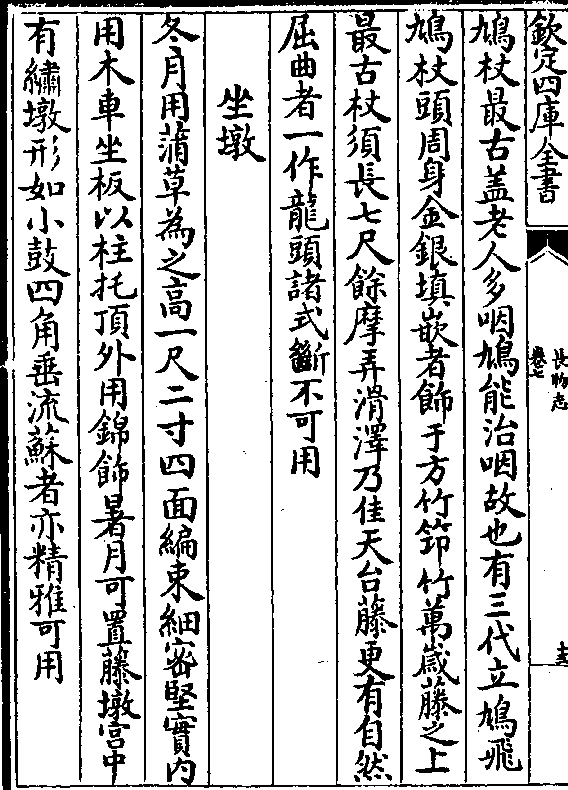 欽定四庫全書
長物志
卷七
鳩杖最古蓋老人多咽鳩能治咽故也有三代立鳩飛
鳩杖頭周身金銀填嵌者飾于方竹筇竹萬歲藤之上
最古杖須長七尺餘摩弄滑澤乃佳天台藤更有自然
屈曲者一作龍頭諸式斷不可用
坐墩
冬月用蒲草為之高一尺二寸四面編束細密堅實内
用木車坐板以柱托頂外用錦飾暑月可置藤墩宫中
有繡墩形如小鼓四角垂流蘇者亦精雅可用